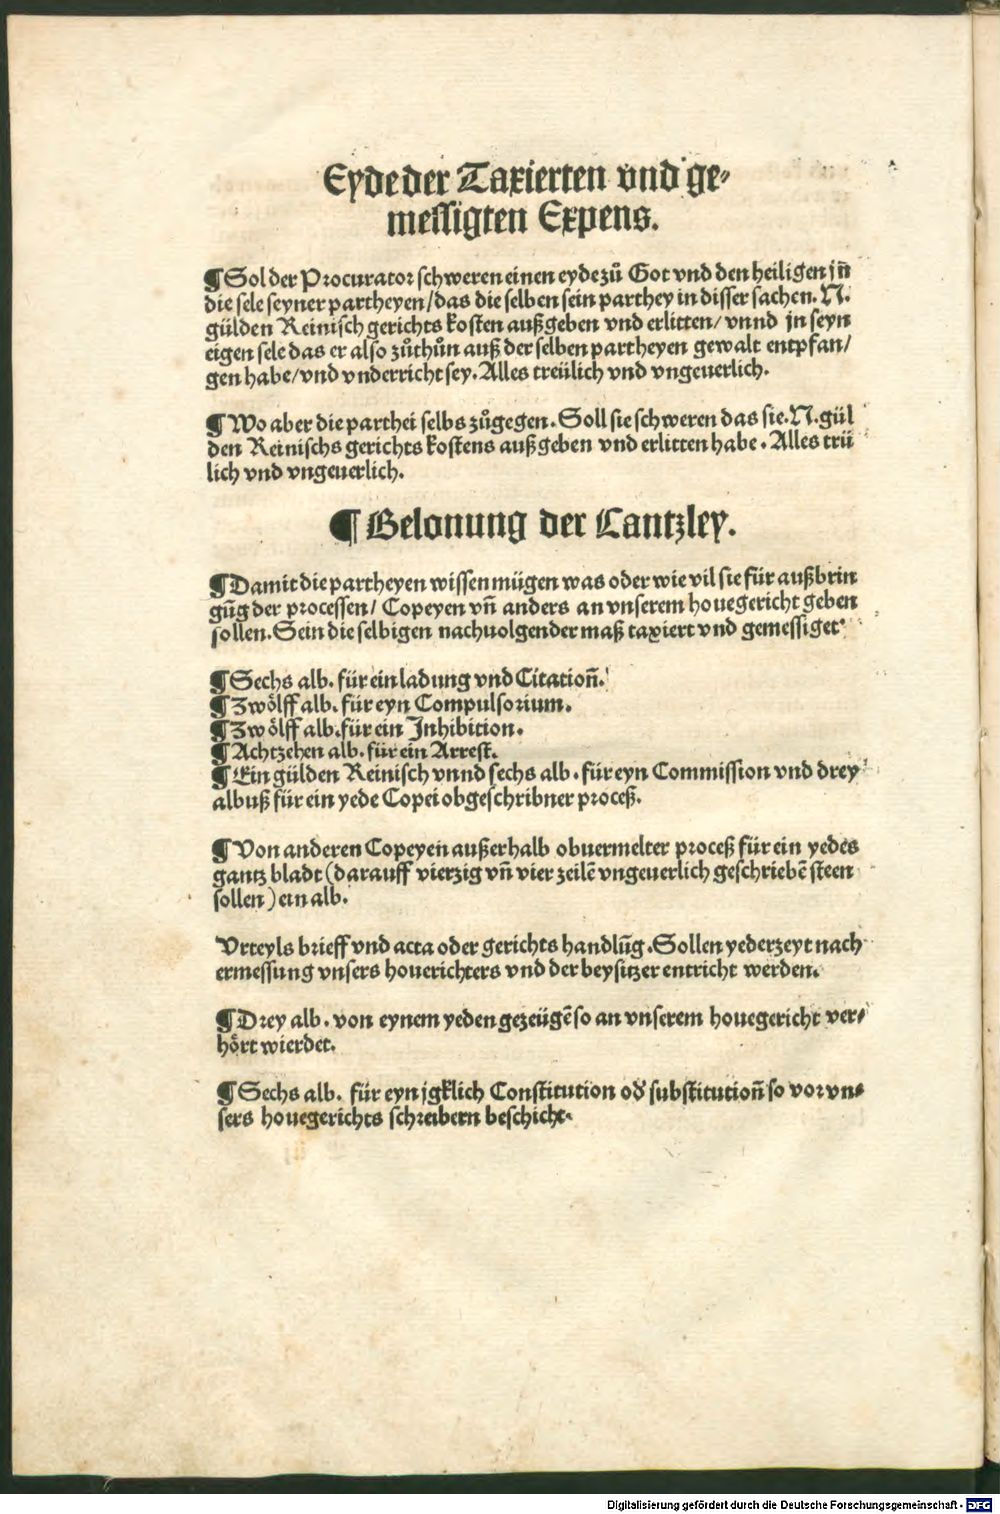 Eyde der Taxierten vnd ge-
messigten Expens.
¶ Sol der Procurator schweren einen eyde zů Got vnd den heiligen jn̄
die sele seyner partheyen/das die selben sein parthey in disser sachen. N.
gülden Reinisch gerichts kosten außgeben vnd erlitten/ vnnd jn seyn
eigen sele das er also zůthůn auß der selben partheyen gewalt entpfan/
gen habe/vnd vnderricht sey. Alles treülich vnd vngeuerlich.
¶ Wo aber die parthei selbs zůgegen. Soll sie schweren das sie. N. gül
den Reinischs gerichts kostens außgeben vnd erlitten habe. Alles trü
lich vnd vngeuerlich.
¶ Belonung der Cantzley.
¶ Damit die partheyen wissen mügen was oder wie vil sie für außbrin
gūg der processen/ Copeyen vn̄ anders an vnserem houegericht geben
sollen. Sein die selbigen nachuolgender maß taxiert vnd gemessiget
¶ Sechs alb. für ein ladung vnd Citation̄.
¶ Zwölff alb. für eyn Compulsorium.
¶ Zwölff alb. für ein Inhibition.
¶ Achtzehen alb. für ein Arrest.
¶ Ein gülden Reinisch vnnd sechs alb. für eyn Commission vnd drey
albuß für ein yede Copei obgeschribner proceß.
¶ Von anderen Copeyen außerhalb obuermelter proceß für ein yedes
gantz bladt (darauff vierzig vn̄ vier zeilē vngeuerlich geschriebē steen
sollen) ein alb.
Vrteyls brieff vnd acta oder gerichts handlūg. Sollen yederzeyt nach
ermessung vnsers houerichters vnd der beysitzer entricht werden.
¶ Drey alb. von eynem yeden gezeügē so an vnserem houegericht ver-
hört wierdet.
¶ Sechs alb. für eyn jgklich Constitution od̕ substitution̄ so vor vn-
sers houegerichts schreibern beschicht.
Digitalisierung gefördert durch die Deutsche Forschungsgemeinschaft - DFG